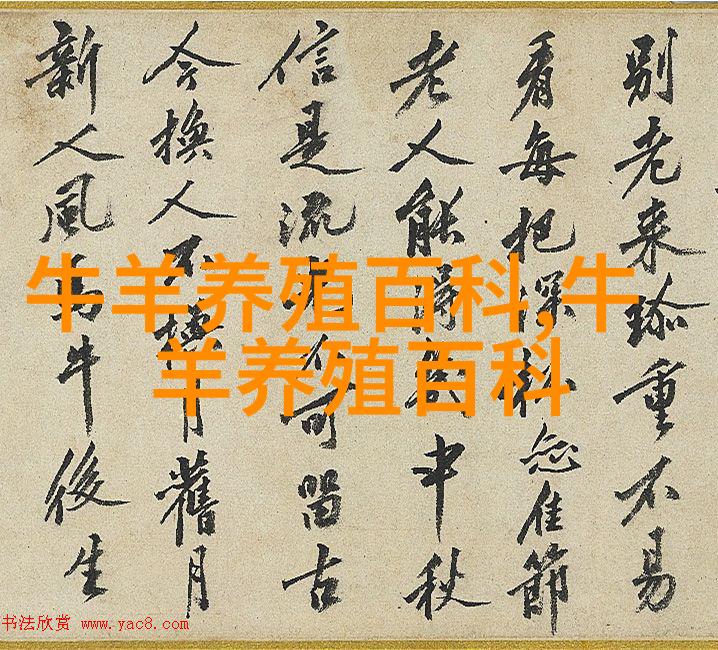 別老来珎重不易
看每把深杯佳節
老人能得幾中秋
信是流光不可留古
今換人不換月舊月
新人風馬牛後生
牛羊养殖百科,牛
羊养殖百科
书法欣赏 www.yac8.com